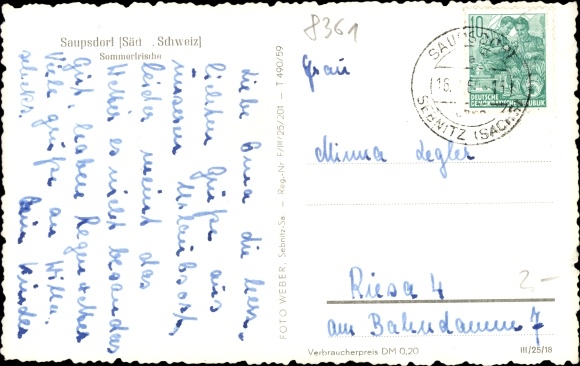 8361
Saupsdorf [Säch . Schweiz]
Sommerfrische
Liebe Oma die herz-
lichsten Grüße aus
unserem Urlaubsort,
leider meint das
Wetter es nicht besonders
gut, haben Regenwetter
Viele Grüße an Willi.
Eure Kinder
FOTO WEBER, Sebnitz-Sa – Reg.-Nr. F/III/25/201 – T 490/59
10
DEUTSCHE
DEMOKRATISCHE REPUBLIK
SAUPSDORF
SEBNITZ (SACHS)
Frau
Minna Legler
Riesa 4
am Bahndamm 7
2.-
Verbraucherpreis DM 0,20
III/25/18